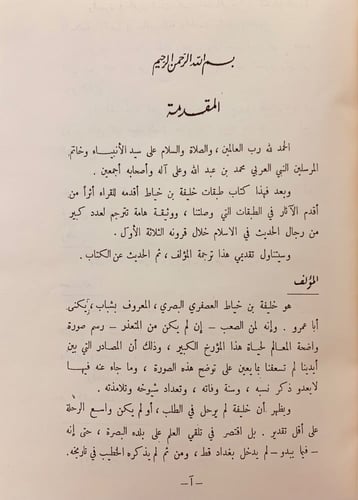 بسم الله الرحمن الرحيم
المقدمة
الحمد لله رب العالمين ، والصلاة والسلام على سيد الأنبياء وخاتم
المرسلين النبي العربي محمد بن عبد الله وعلى آله وأصحابه أجمعين .
وبعد فهذا كتاب طبقات خليفة بن خياط أقدمه للقراء أثراً من
أقدم الآثار في الطبقات التي وصلتنا ، ووثيقة هامة تترجم لعدد كبير
من رجال الحديث في الاسلام خلال قرونه الثلاثة الأولى .
وسيتناول تقديمي هذا ترجمة المؤلف ، ثم الحديث عن الكتاب .
المؤلف
هو خليفة بن خياط العصفري البصري ، المعروف بشباب ، يكنى
أبا عمرو . وإنه لمن الصعب – إن لم يكن من المتعذر – رسم صورة
واضحة المعالم لحياة هذا المؤرخ الكبير ، وذلك أن المصادر التي بين
أيدينا لم تسعفنا بما يعين على توضيح هذه الصورة ، وما جاء عنه فيها
لا يعدو ذكر نسبه ، وسنة وفاته ، وتعداد شيوخه وتلامذته .
ويظهر أن خليفة لم يرحل في الطلب ، أو لم يكن واسع الرحلة
على أقل تقدير . بل اقتصر في تلقي العلم على بلده البصرة ، حتى إنه
– فيما يبدو – لم يدخل بغداد قط ، ومن ثم لم يذكره الخطيب في تاريخه .
– آ –